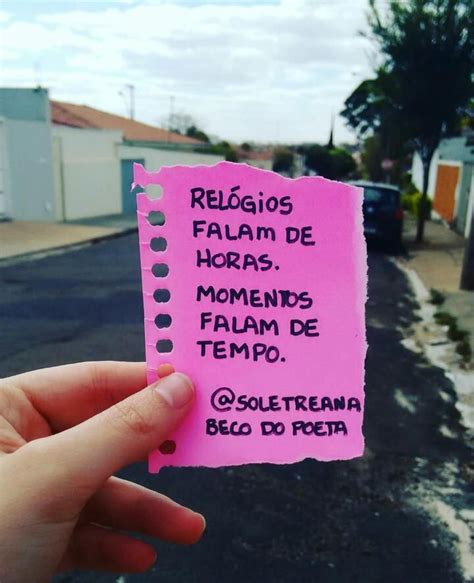 RELÓGIOS
FALAM DE
HORAS.
MOMENTOS
FALAM DE
TEMPO.
@SOLETREANA
BECO DO POETA